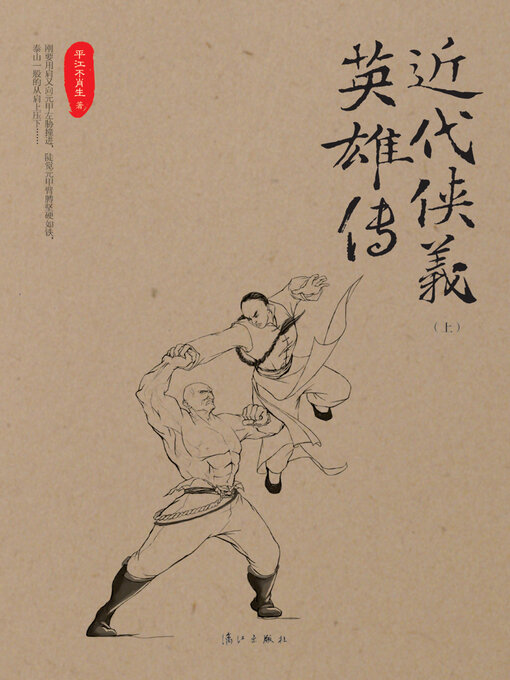 近代侠義
英雄传
（上）
平江不肖生 著
刚要用肩又向元甲左胁撞进，陡觉元甲臂膊坚硬如铁，
泰山一般的从肩上压下……
漓江出版社